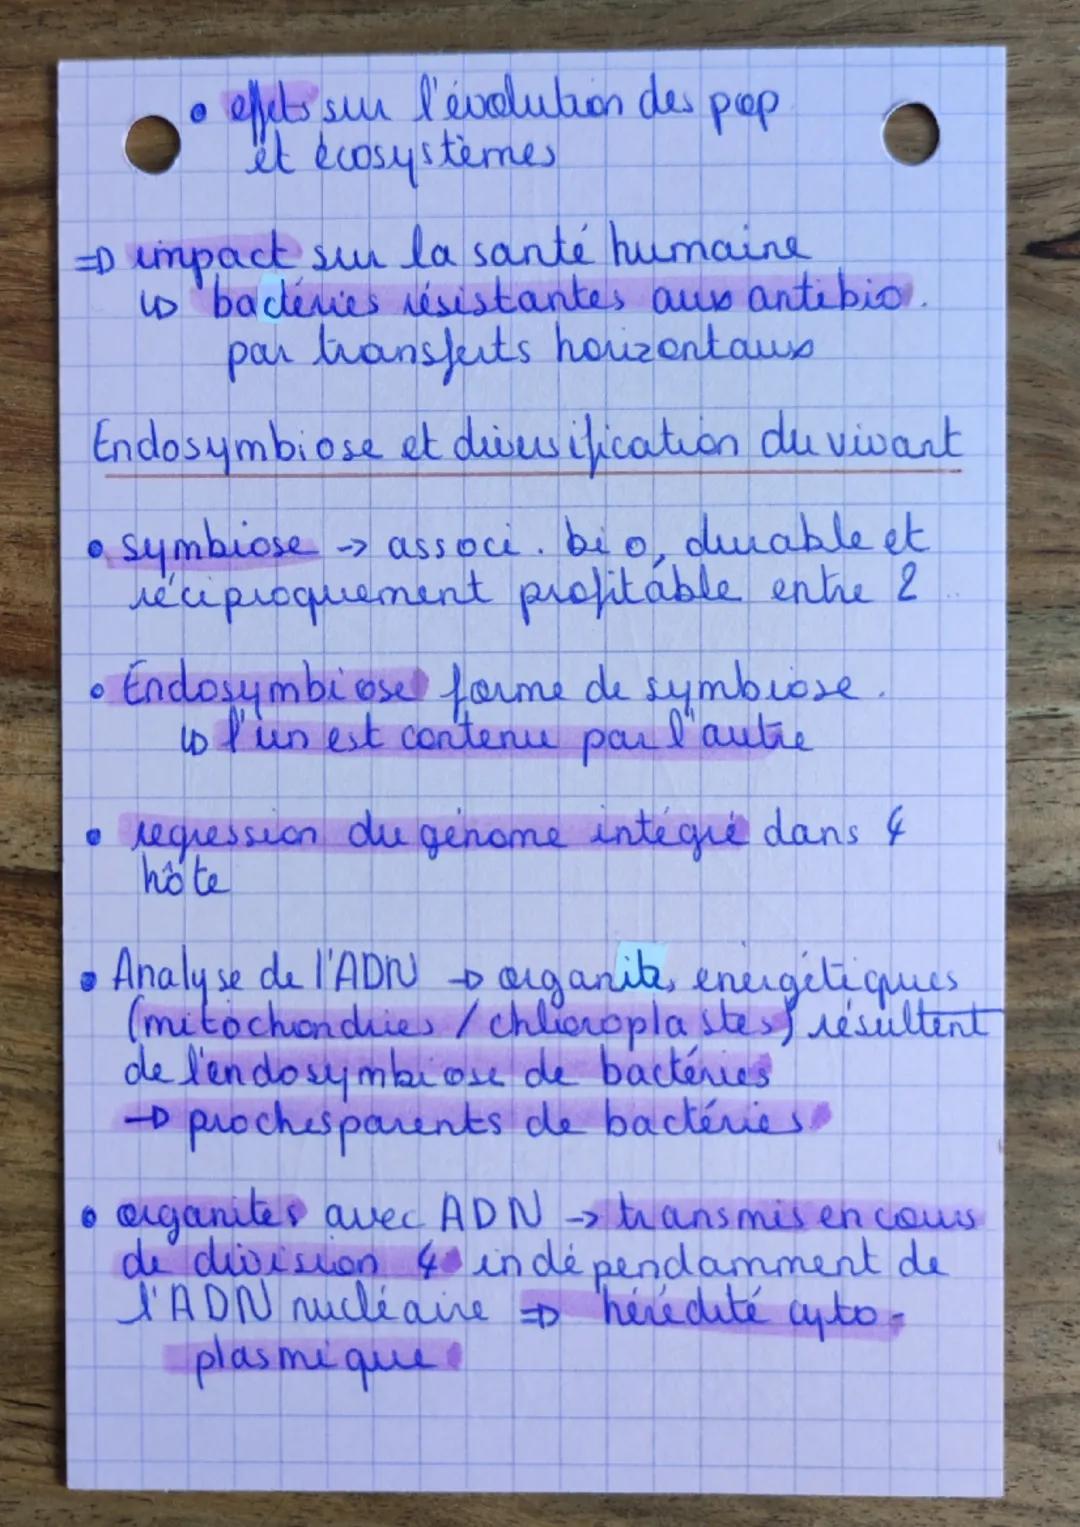 • effets sur l'évolution des pop
et écosystèmes
=> impact sur la santé humaine
↳ bactéries résistantes aux antibio.
par transferts horizontaux
Endosymbiose et diversification du vivant
• symbiose -> associ. bio, durable et
réciproquement profitable entre 2 ..
• Endosymbiose forme de symbiose.
↳ l'un est contenu par l'autre
• regression du génome intégré dans ¢
hôte
• Analyse de l'ADN -> organites énergétiques
(mitochondries / chloroplastes) résultent
de l'endosymbiose de bactéries
-> proches parents de bactéries
• organites avec ADN -> transmis en cours
de division ¢ indépendamment de
l'ADN nucléaire => hérédité cyto-
plasmique